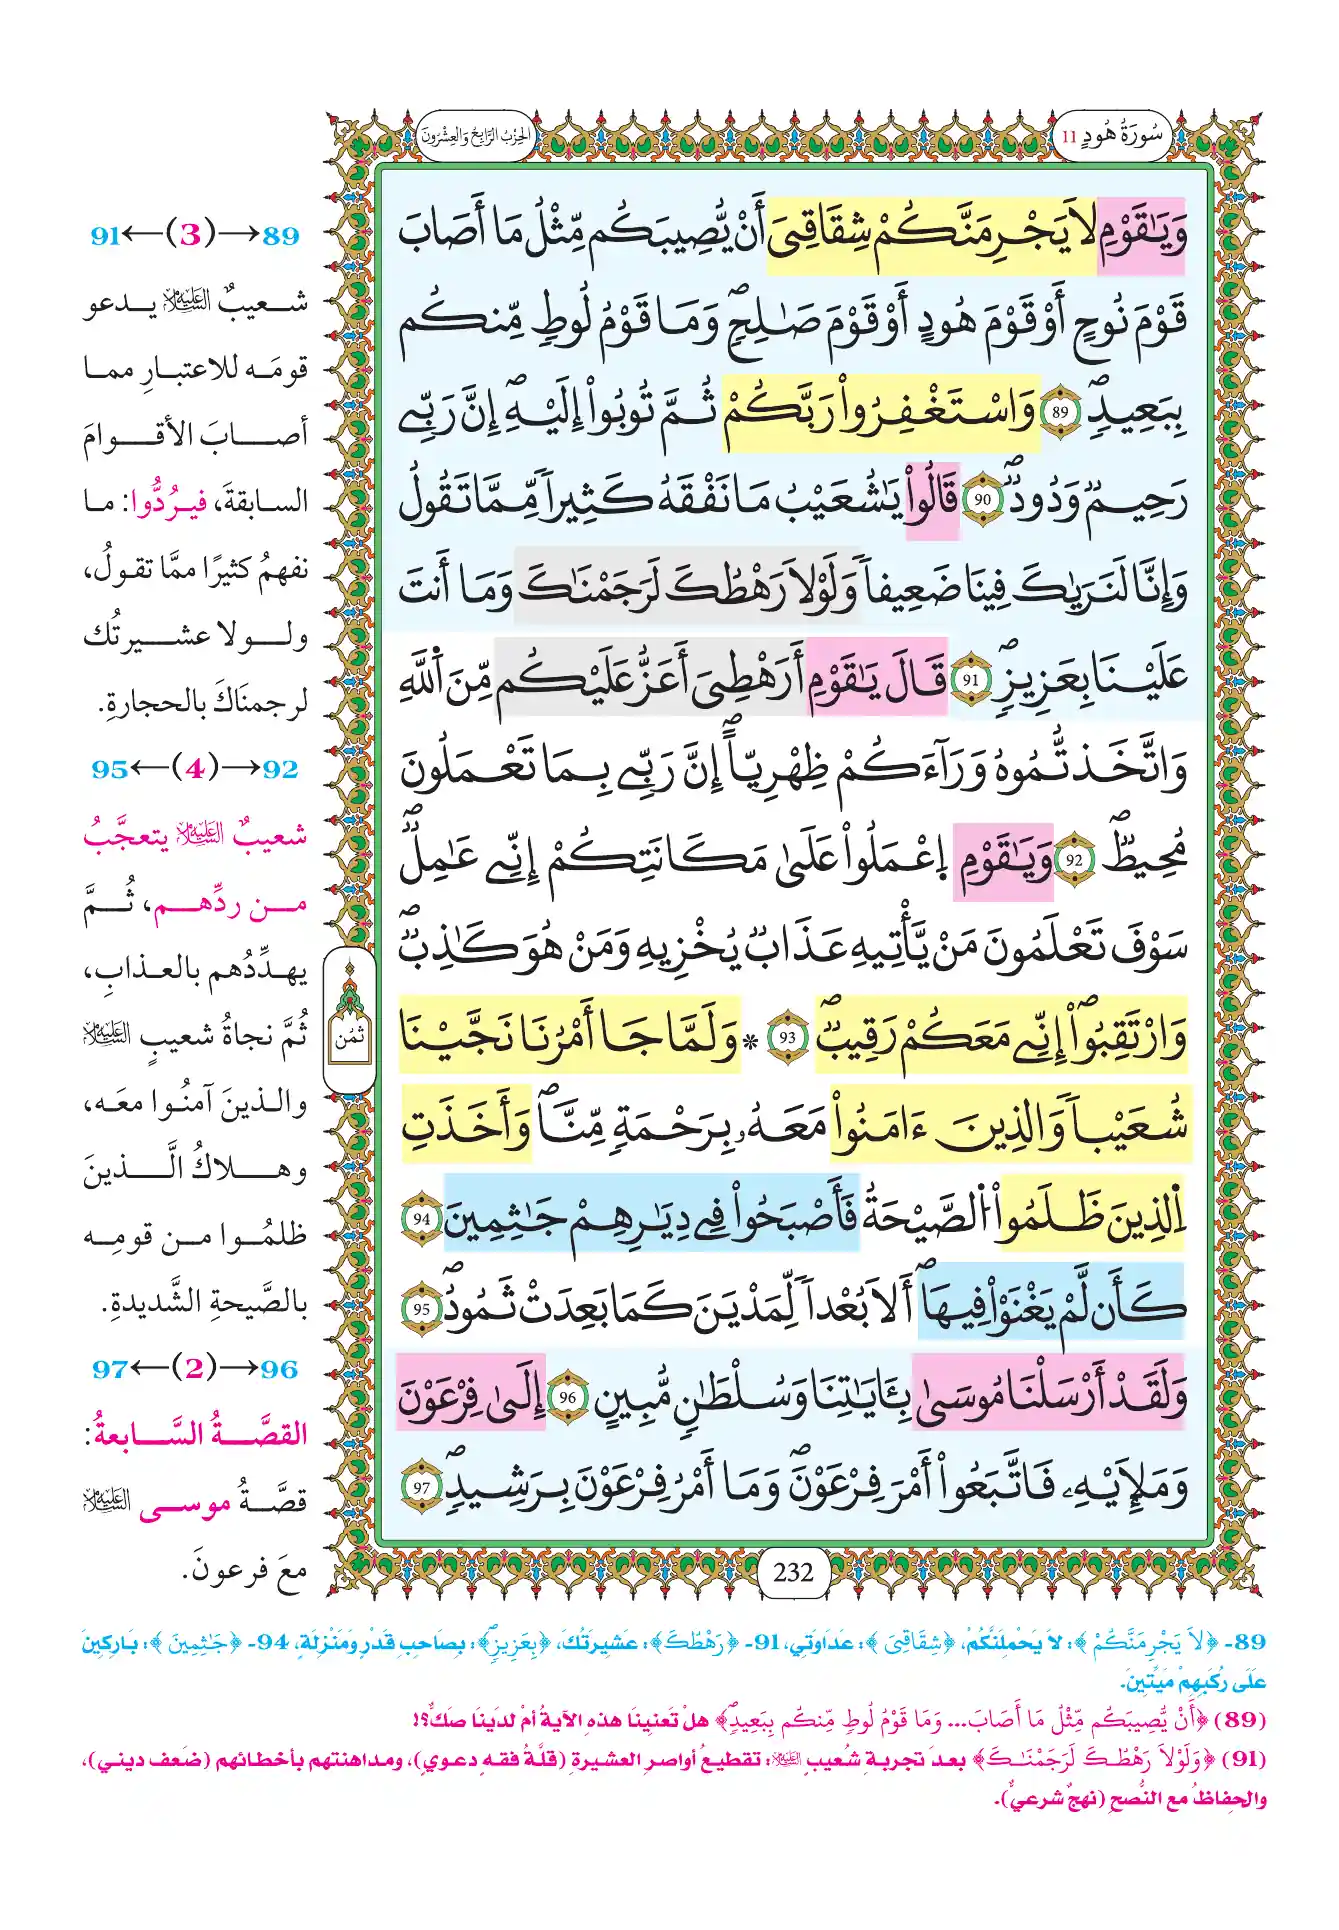 سُورَةُ هُودٍ 11
الحِزْبُ الرَّابِعُ وَالعِشْرُونَ
وَيَٰقَوْمِ لَا يَجْرِمَنَّكُمْ شِقَاقِىَ أَنْ يُّصِيبَكُم مِّثْلُ مَا أَصَابَ
قَوْمَ نُوحٍ أَوْ قَوْمَ هُودٍ أَوْ قَوْمَ صَٰلِحٍۖ وَمَا قَوْمُ لُوطٍ مِّنكُم
بِبَعِيدٍۖ 89 وَاسْتَغْفِرُواْ رَبَّكُمْ ثُمَّ تُوبُواْ إِلَيْهِۖ إِنَّ رَبِّے
رَحِيمٌ وَدُودٌۖ 90 قَالُواْ يَٰشُعَيْبُ مَا نَفْقَهُ كَثِيراً مِّمَّا تَقُولُ
وَإِنَّا لَنَرَيٰكَ فِينَا ضَعِيفاً وَلَوْلَا رَهْطُكَ لَرَجَمْنَٰكَ وَمَا أَنتَ
عَلَيْنَا بِعَزِيزٍۖ 91 قَالَ يَٰقَوْمِ أَرَهْطِىَ أَعَزُّ عَلَيْكُم مِّنَ اَللَّهِ
وَاتَّخَذتُّمُوهُ وَرَآءَكُمْ ظِهْرِيّاًۖ إِنَّ رَبِّے بِمَا تَعْمَلُونَ
مُحِيطٌۖ 92 وَيَٰقَوْمِ اِعْمَلُواْ عَلَىٰ مَكَانَتِكُمْ إِنِّے عَٰمِلٌۖ
سَوْفَ تَعْلَمُونَ مَنْ يَّأْتِيهِ عَذَابٌ يُخْزِيهِ وَمَنْ هُوَ كَٰذِبٌۖ
وَارْتَقِبُواْۖ إِنِّے مَعَكُمْ رَقِيبٌۖ 93 * وَلَمَّا جَا أَمْرُنَا نَجَّيْنَا
شُعَيْباً وَالذِينَ ءَامَنُواْ مَعَهُۥ بِرَحْمَةٍ مِّنَّاۖ وَأَخَذَتِ
اِلذِينَ ظَلَمُواْ اُلصَّيْحَةُ فَأَصْبَحُواْ فِے دِيَٰرِهِمْ جَٰثِمِينَ 94
كَأَن لَّمْ يَغْنَوْاْ فِيهَاۖ أَلَا بُعْداً لِّمَدْيَنَ كَمَا بَعِدَتْ ثَمُودُۖ 95
وَلَقَدْ أَرْسَلْنَا مُوسَىٰ بِـَٔايَٰتِنَا وَسُلْطَٰنٍ مُّبِينٍ 96 إِلَىٰ فِرْعَوْنَ
وَمَلَإِيْهِۦ فَاتَّبَعُواْ أَمْرَ فِرْعَوْنَۖ وَمَا أَمْرُ فِرْعَوْنَ بِرَشِيدٍۖ 97
ثُمُن
232
89→(3)←91
شعيبٌ عليه السلام يدعو
قومَه للاعتبارِ مما
أصابَ الأقوامَ
السابقةَ، فيرُدُّوا: ما
نفهمُ كثيرًا ممَّا تقولُ،
ولولا عشيرتُك
لرجمنَاكَ بالحجارةِ.
92→(4)←95
شعيبٌ عليه السلام يتعجَّبُ
من ردِّهم، ثُمَّ
يهدِّدُهم بالعذابِ،
ثُمَّ نجاةُ شعيبٍ عليه السلام
والذينَ آمنُوا معَه،
وهلاكُ الَّذينَ
ظلمُوا من قومِه
بالصَّيحةِ الشَّديدةِ.
96→(2)←97
القصَّةُ السَّابعةُ:
قصَّةُ موسى عليه السلام
معَ فرعونَ.
89- ﴿لَا يَجْرِمَنَّكُمْ﴾: لَا يَحْمِلَنَّكُمْ، ﴿شِقَاقِىَ﴾: عَدَاوَتِي، 91- ﴿رَهْطُكَ﴾: عَشِيرَتُكَ، ﴿بِعَزِيزٍۖ﴾: بِصَاحِبِ قَدْرٍ وَمَنْزِلَةٍ، 94- ﴿جَٰثِمِينَ﴾: بَارِكِينَ
عَلَى رُكَبِهِمْ مَيِّتِينَ.
(89) ﴿أَنْ يُّصِيبَكُم مِّثْلُ مَا أَصَابَ... وَمَا قَوْمُ لُوطٍ مِّنكُم بِبَعِيدٍۖ﴾ هلْ تَعنينَا هذهِ الآيةُ أمْ لدَينَا صَكٌ؟!
(91) ﴿وَلَوْلَا رَهْطُكَ لَرَجَمْنَٰكَ﴾ بعدَ تجربةِ شُعيبٍ عليه السلام: تقطيعُ أواصرِ العشيرةِ (قلَّةُ فقهٍ دعوي)، ومداهنتهم بأخطائهم (ضَعف ديني)،
والحِفاظُ مع النُّصحِ (نهجٌ شرعيٌ).